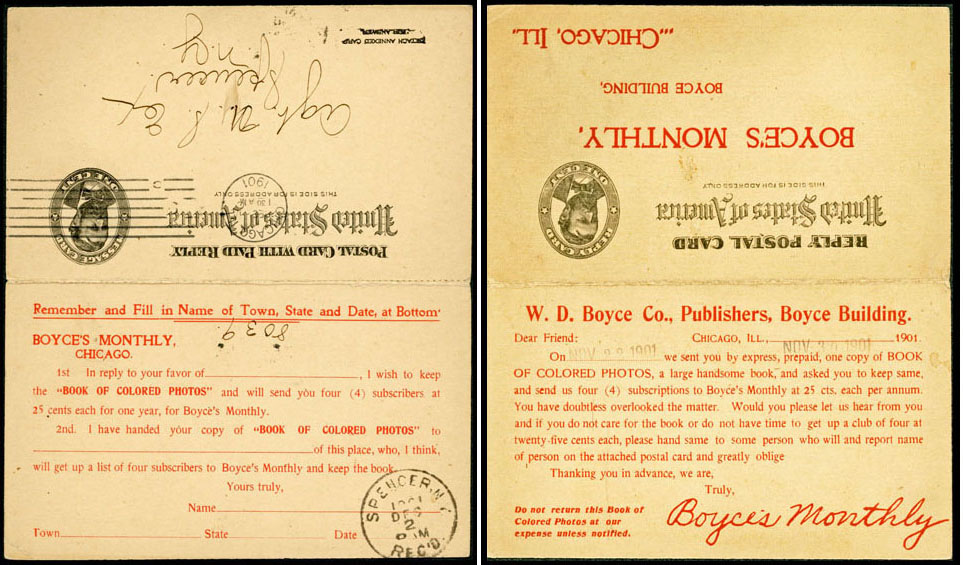 DETACH ANNEXED CARD
FOR ANSWER.
Agt. U. S. Ex
Spencer
N.Y.
1901
CHICAGO
THIS SIDE IS FOR ADDRESS ONLY
United States of America
POSTAL CARD WITH PAID REPLY
MESSAGE CARD
ONE CENT
Remember and Fill in Name of Town, State and Date, at Bottom
8039
BOYCE'S MONTHLY,
CHICAGO.
1st In reply to your favor of , I wish to keep
the "BOOK OF COLORED PHOTOS" and will send you four (4) subscribers at
25 cents each for one year, for Boyce's Monthly.
2nd. I have handed your copy of "BOOK OF COLORED PHOTOS" to
of this place, who, I think,
will get up a list of four subscribers to Boyce's Monthly and keep the book.
Yours truly,
Name
Town State Date
SPENCER, N.Y.
DEC
2
REC'D.
...CHICAGO, ILL.
BOYCE BUILDING,
BOYCE'S MONTHLY,
THIS SIDE IS FOR ADDRESS ONLY
United States of America
REPLY POSTAL CARD
REPLY CARD
ONE CENT
W. D. Boyce Co., Publishers, Boyce Building.
Dear Friend: CHICAGO, ILL., NOV 30 1901 1901.
On NOV 22 1901 we sent you by express, prepaid, one copy of BOOK
OF COLORED PHOTOS, a large handsome book, and asked you to keep same,
and send us four (4) subscriptions to Boyce's Monthly at 25 cts. each per annum.
You have doubtless overlooked the matter. Would you please let us hear from you
and if you do not care for the book or do not have time to get up a club of four at
twenty-five cents each, please hand same to some person who will and report name
of person on the attached postal card and greatly oblige
Thanking you in advance, we are,
Truly,
Do not return this Book of
Colored Photos at our
expense unless notified.
Boyce's Monthly